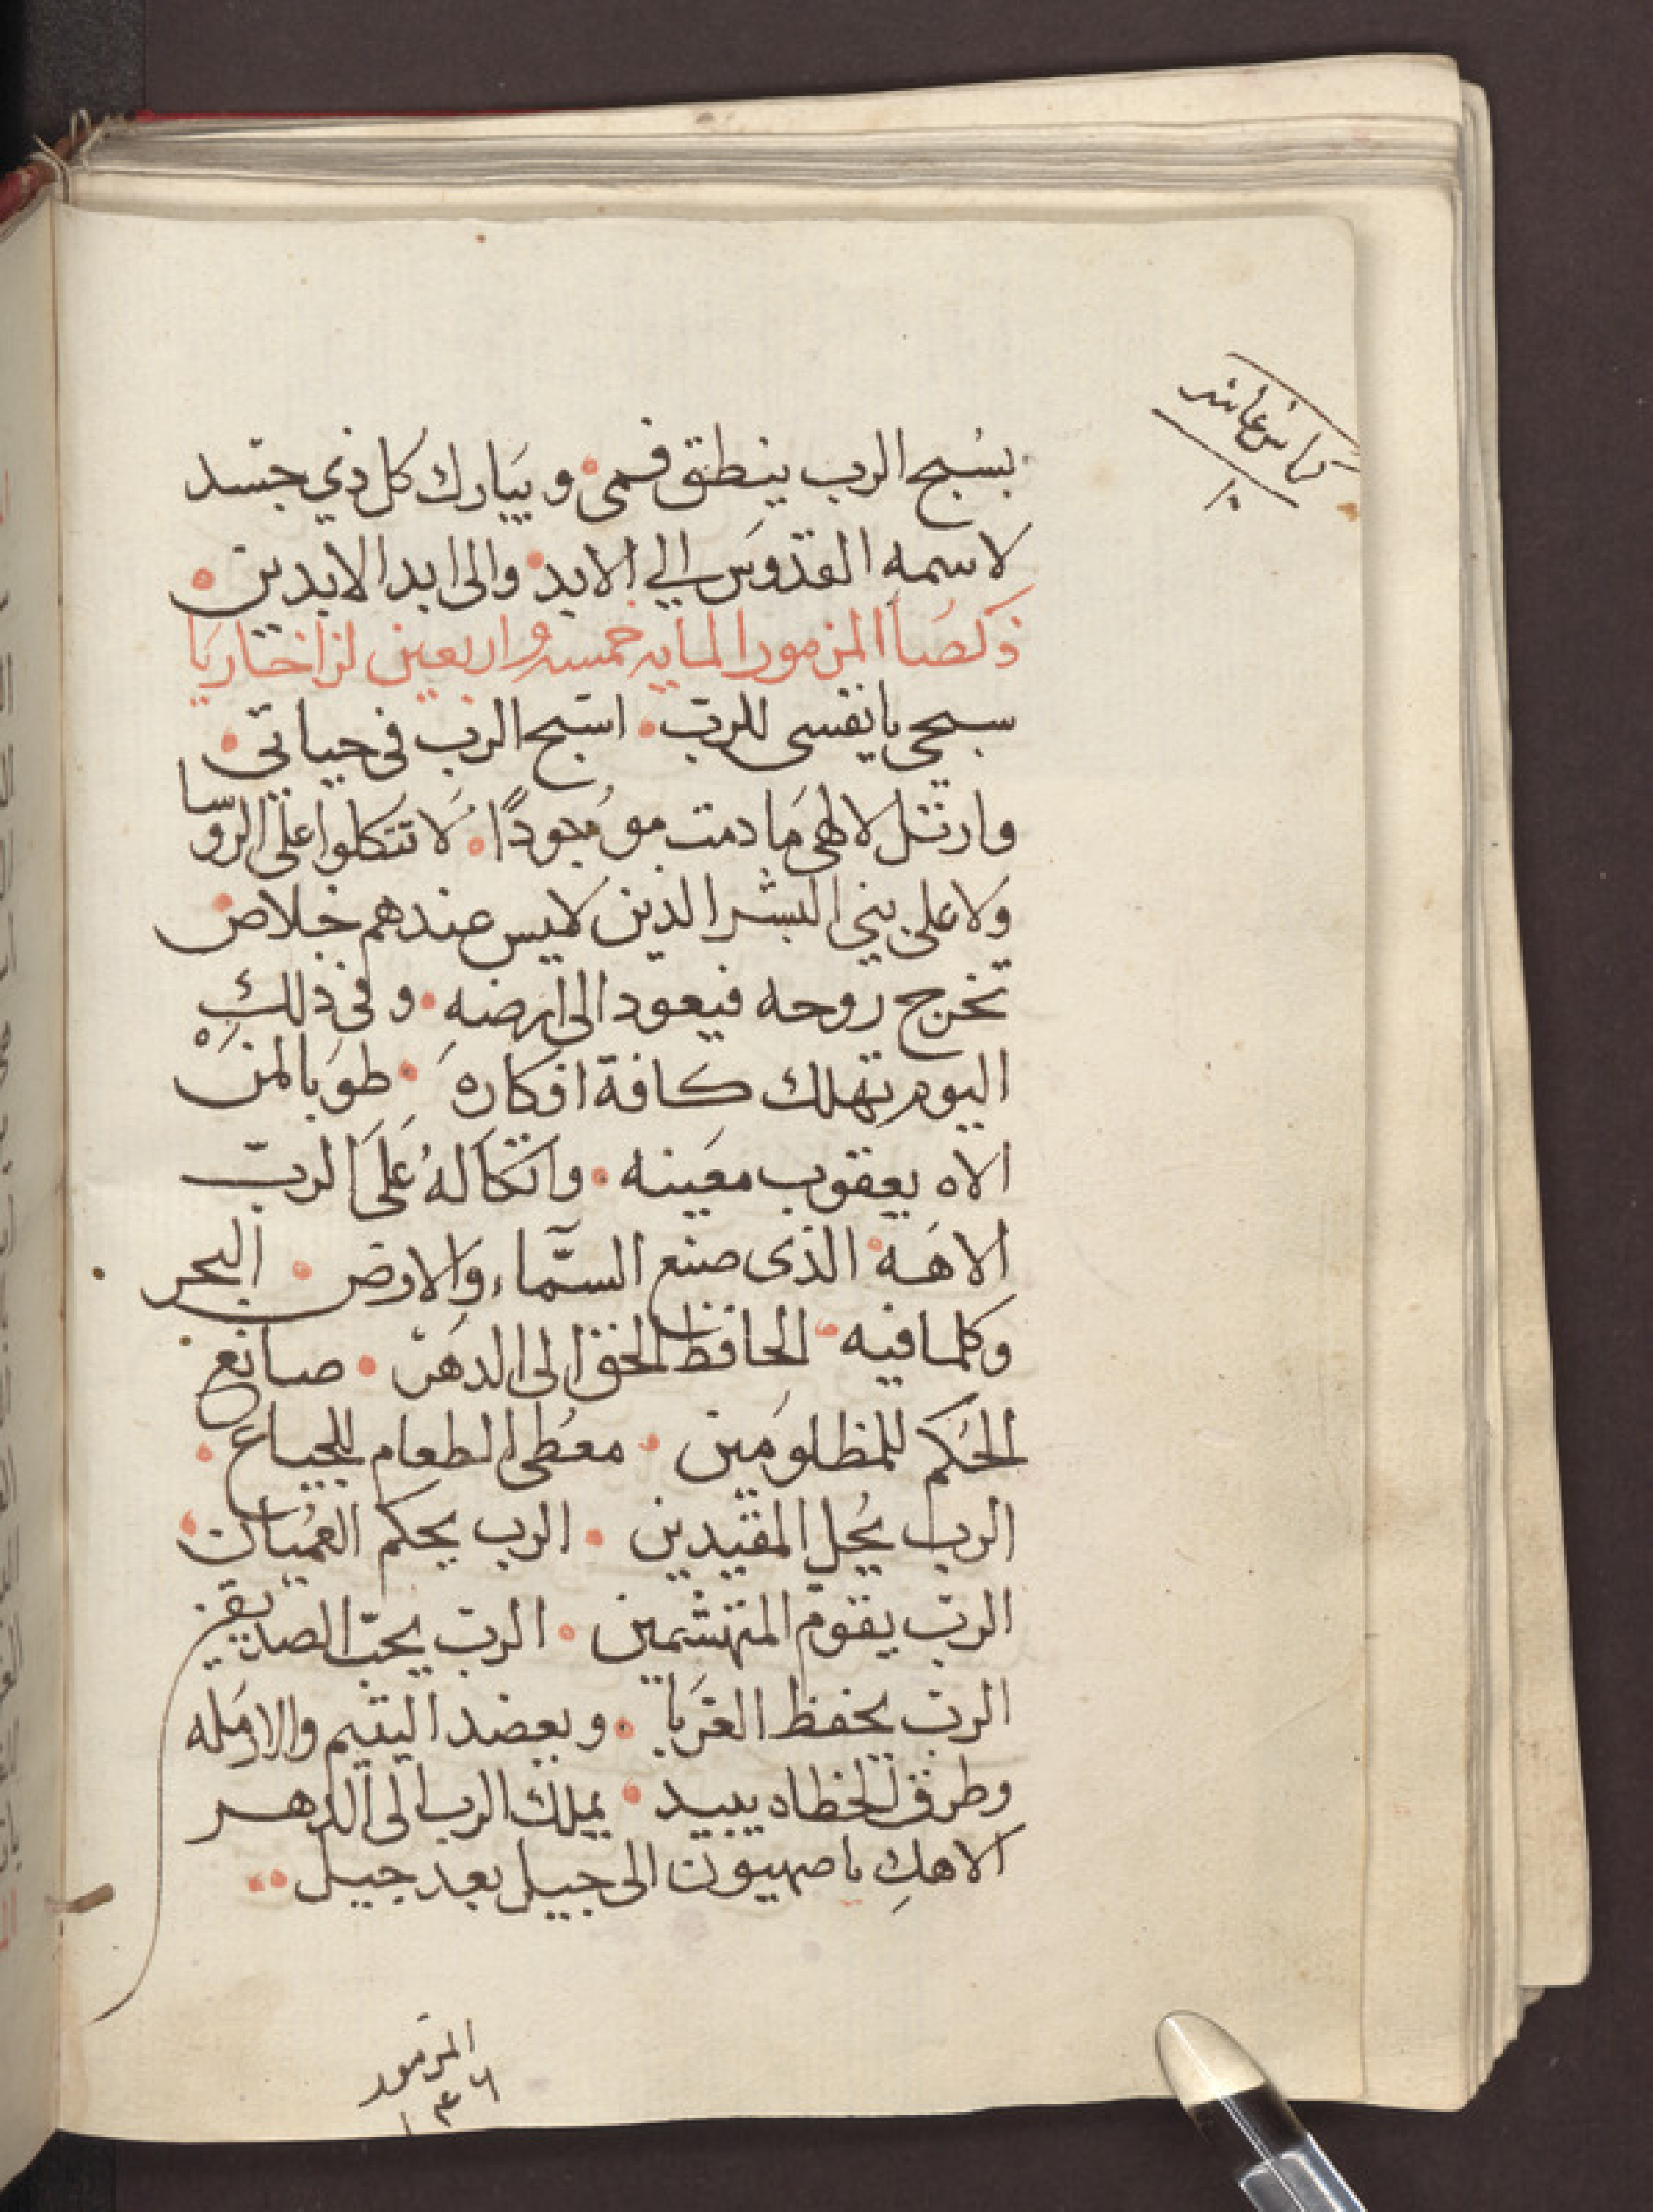 كراس عاشر
١٠
بسُبح الرب ينطق فمي و يَبارك كل ذي جسد
لاسمه القدوس الي الابد والى ابد الابدين
ذكصا المزمور المايه خمسه واربعين لزاخاريا
سبحي يا نفسى للرب اسبح الرب في حياتي
وارتل لالهي مَا دمت موجودًا لا تتكلوا على الروسا
ولا على بني البشر الذين ليس عندهم خلاص
تخرج روحه فيعود الى ارضه و في ذلك
اليوم تهلك كافة افكاره طوبا لمن
الاه يعقوب معينه واتكاله على الرب
الاهه الذى صنع السمآء والارض البحر
وكلما فيه الحافظ الحق الى الدهر صانع
الحكم للمظلومين معطى الطعام للجياع
الرب يحُل المقيدين الرب يحكم العميان
الرب يقوم المتهشمين الرب يحب الصديقين
الرب يحفظ الغربا ويعضد اليتيم والارمله
وطرق الخطاه يبيد يملك الرب الى الدهر
الاهكِ يا صهيون الى جيل بعد جيل
المزمور
١٤٦